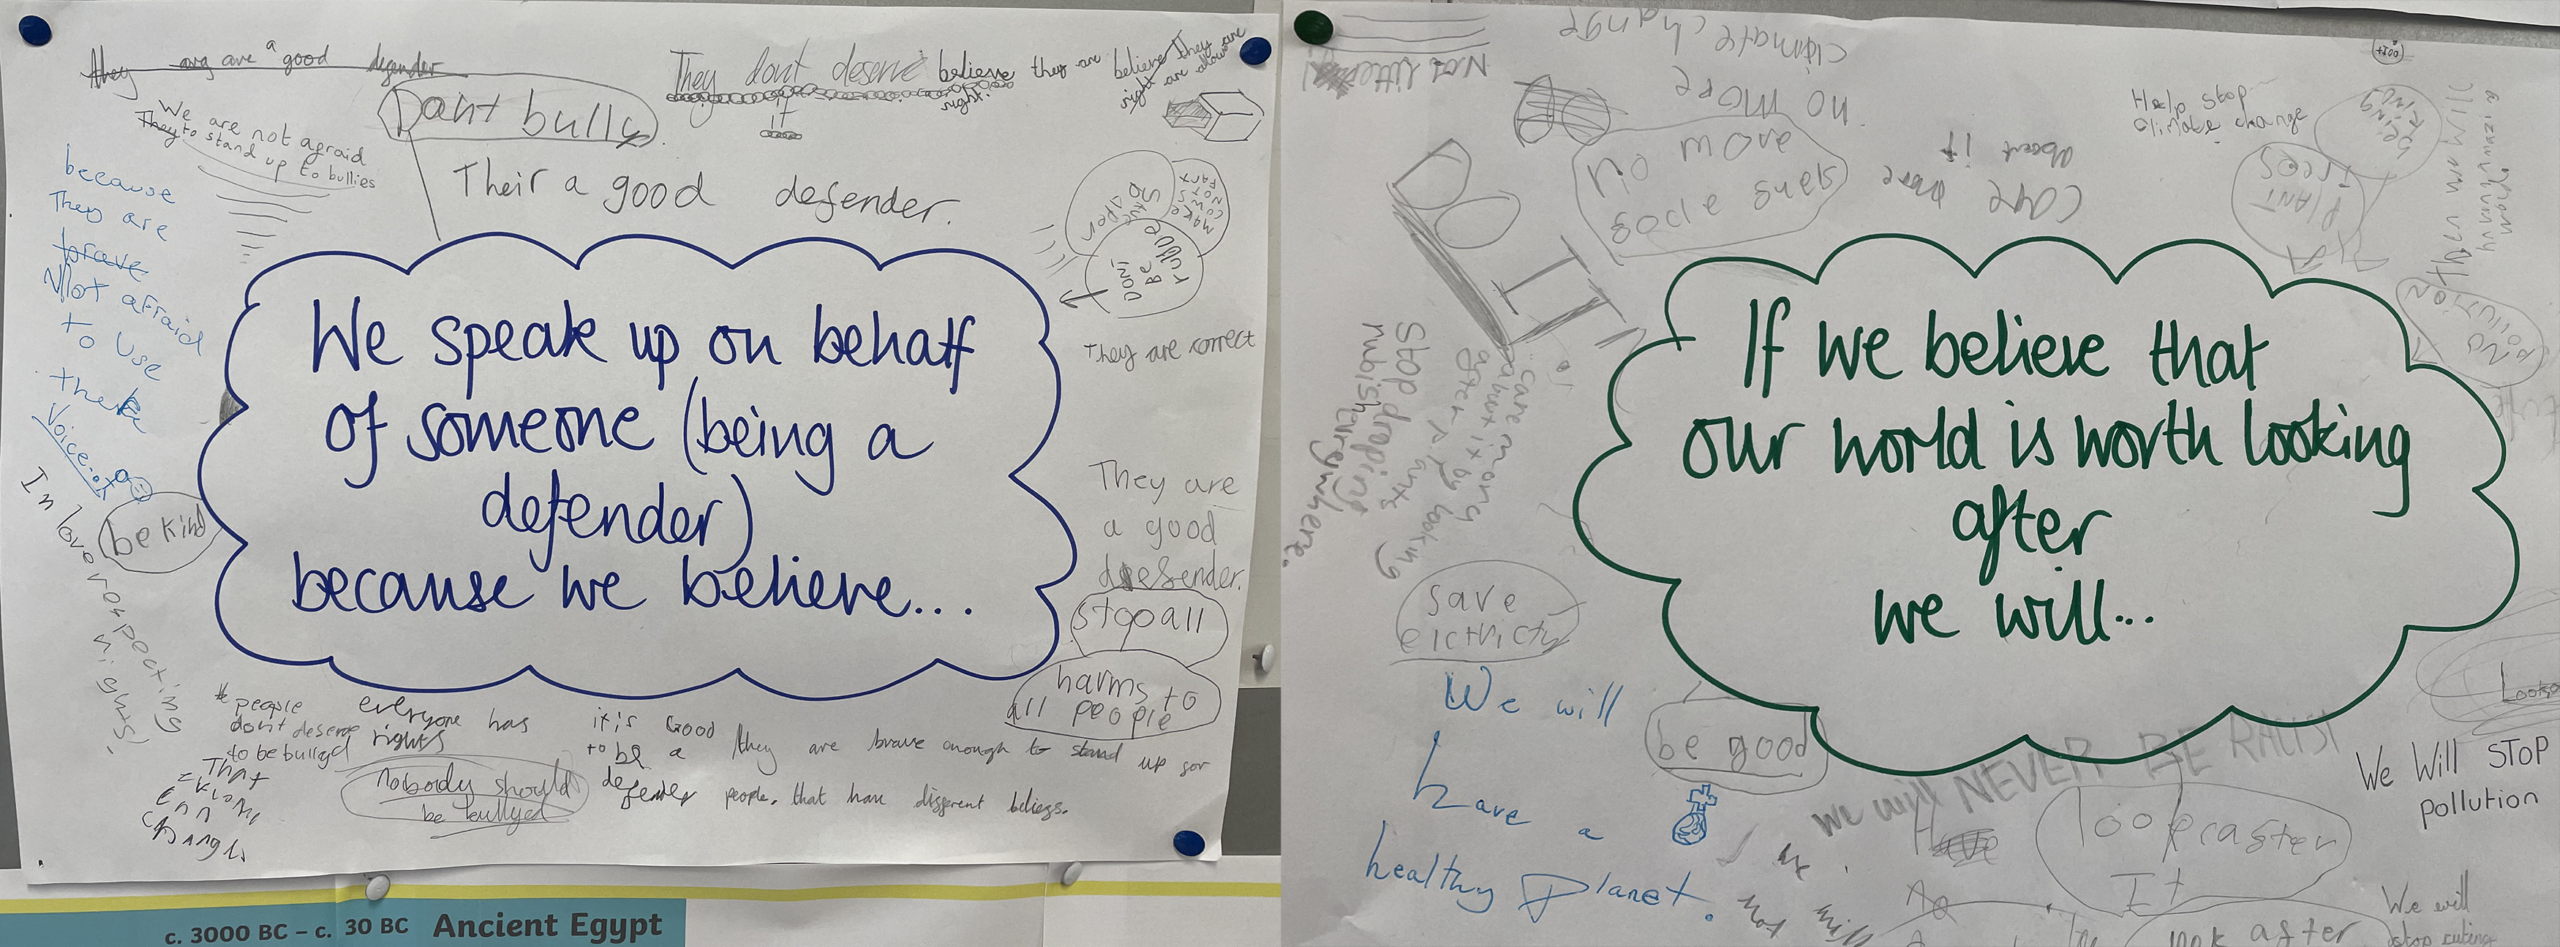 They are a good defender
They don't deserve
it
believe they are
right.
believe They are
right are allowed
We are not afraid
They to stand up to bullies
Dont bully
Their a good defender.
because
They are
brave
Not afraid
to use
their
Voice.
be kind
MAKE
COWS
NOT
FART
DONT
BE
They are correct
We speak up on behalf
of someone (being a
defender)
because we believe...
They are
a good
defender.
stop all
harms to
all people
rights!
people
dont deserve
to be bullyed
everyone has
rights
nobody should
be bullyed
it's Good
to be a
defender
they are brave enough to stand up for
people. that have different beliefs.
That
c. 3000 BC – c. 30 BC Ancient Egypt
climate change
no more
no more
Care more
about it
Help stop
climate change
PLANT
trees
NO
POLLUTION
Stop droping
rubish everywhere.
Care more
about it by looking
after plants
If we believe that
our world is worth looking
after
we will...
save
elctricty
We will
have a
healthy Planet.
be good
we will NEVER BE RACIST
We Will STOP
pollution
look after
It
look after
We will
stop cuting